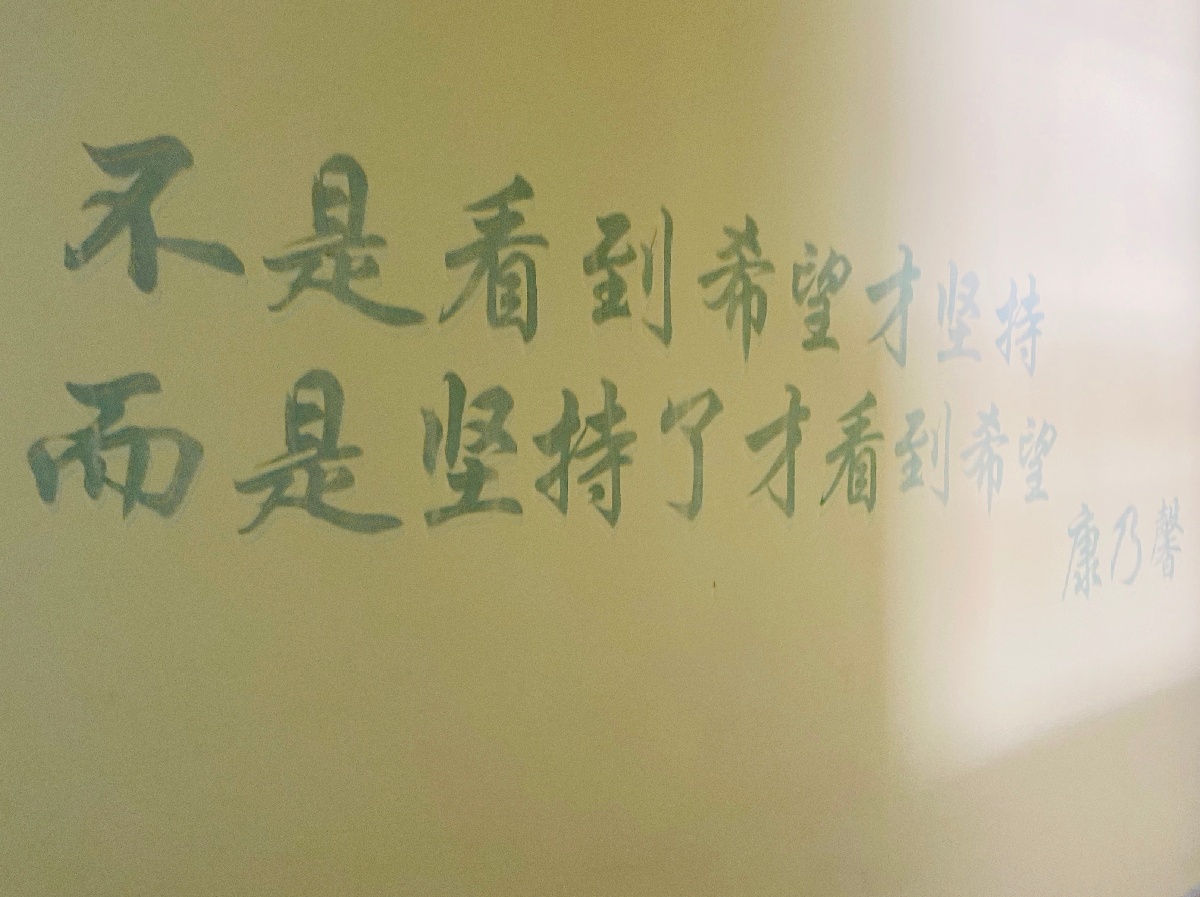 不是看到希望才坚持
而是坚持了才看到希望
康乃馨